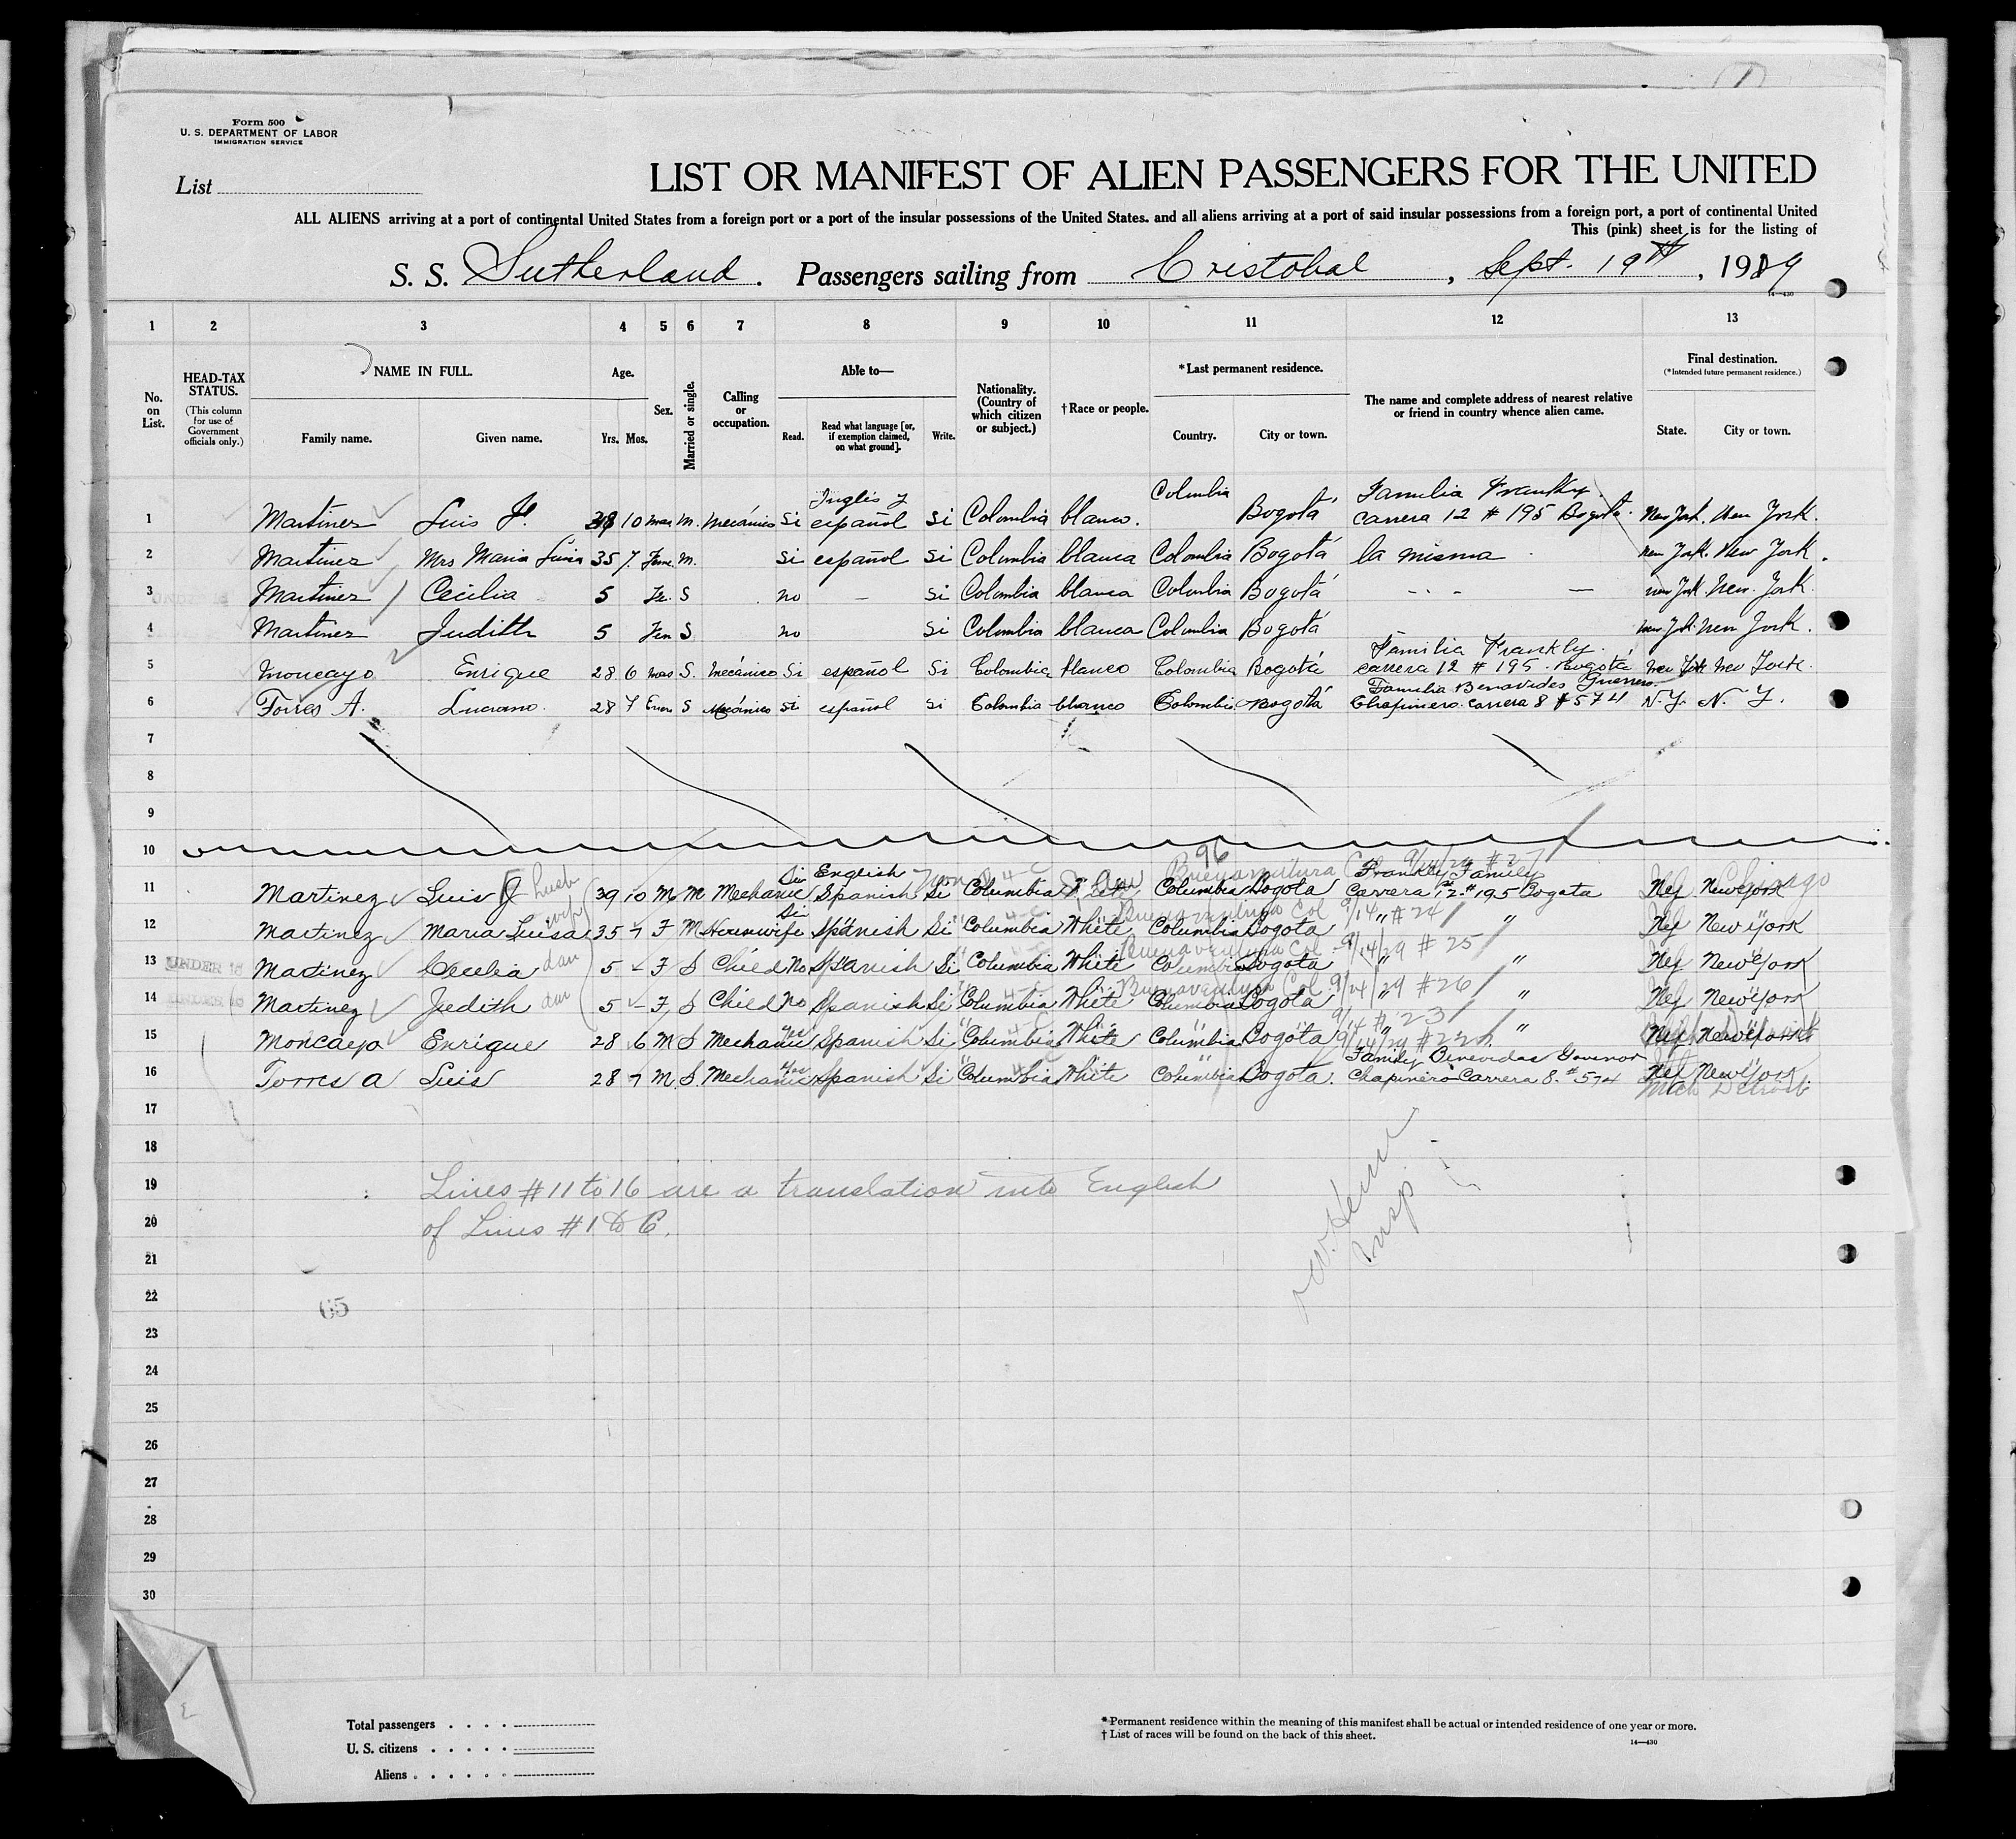 Form 500
U. S. DEPARTMENT OF LABOR
IMMIGRATION SERVICE
List
LIST OR MANIFEST OF ALIEN PASSENGERS FOR THE UNITED
ALL ALIENS arriving at a port of continental United States from a foreign port or a port of the insular possessions of the United States, and all aliens arriving at a port of said insular possessions from a foreign port, a port of continental United
This (pink) sheet is for the listing of
S. S. Sutherland. Passengers sailing from Cristobal, Sept. 19th, 1929
14—430
1 2 3 4 5 6 7 8 9 10 11 12 13
No. on List.
HEAD-TAX STATUS.
(This column for use of Government officials only.)
NAME IN FULL.
Family name. Given name.
Age.
Yrs. Mos.
Sex.
Married or single.
Calling or occupation.
Able to—
Read. Read what language [or, if exemption claimed, on what ground]. Write.
Nationality. (Country of which citizen or subject.)
†Race or people.
*Last permanent residence.
Country. City or town.
The name and complete address of nearest relative or friend in country whence alien came.
Final destination.
(*Intended future permanent residence.)
State. City or town.
Inglés y Colombia Familia Frankly.
1 Martinez Luis 10 mas M. Mecánico Si español Si Colombia blanco. Bogotá carrera 12 # 195 Bogotá. New York. New York.
2 Martinez Mrs Maria Luisa 35 7. Feme. M. Si español Si Colombia blanca Colombia Bogotá la misma New York. New York.
3 Martinez Cecilia 5 Fe. S no — Si Colombia blanca Colombia Bogotá - - - — New York. New York.
4 Martinez Judith 5 Fem S no Si Colombia blanca Colombia Bogotá New York. New York.
Familia Frankly.
5 Moncayo Enrique 28 6 mas S. Mecánico Si español Si Colombia blanco Colombia Bogotá carrera 12 # 195. Bogotá New York New York.
Familia Benavides Guerrero.
6 Torres A. Luciano. 28 7 S Mecánico Si español Si Colombia blanco Colombia Bogotá Chapinero. carrera 8 # 574 N.Y. N.Y.
7
8
9
10
96 Buenaventura
Si English Frankly Family
11 Martinez Luis husb 39 10 M M Mechanic Spanish Si Columbia White Columbia Bogota Carrera 12 # 195 Bogota NY New York Chicago
Si Buenaventura Col 9/14 # 24
12 Martinez Maria Luisa wife 35 7 F M Housewife Spanish Si Columbia White Columbia Bogota " " NY New York
Buenaventura Col. 9/14/29 # 25
13 UNDER 16 Martinez Cecelia dau 5 - F S Child No Spanish Si Columbia White Columbia Bogota " " NY New York
Buenaventura Col. 9/14/29 # 26
14 UNDER 16 Martinez Judith dau 5 - F S Child No Spanish Si Columbia White Columbia Bogota " " NY New York
9/14 # 23
15 Moncayo Enrique 28 6 M S Mechanic Spanish Si Columbia White Columbia Bogota " " NY New York
9/14/29 # 22
Family Benevidas Govenor
16 Torres A Luis 28 7 M S Mechanic Spanish Si Columbia White Columbia Bogota. Chapinero Carrera 8. # 574 NY New York
Mich Detroit
17
18
19 Lines # 11 to 16 are a translation into English
20 of Lines # 1 to 6.
Insp
21
22
65
23
24
25
26
27
28
29
30
Total passengers
U. S. citizens
Aliens
*Permanent residence within the meaning of this manifest shall be actual or intended residence of one year or more.
†List of races will be found on the back of this sheet.
14—430